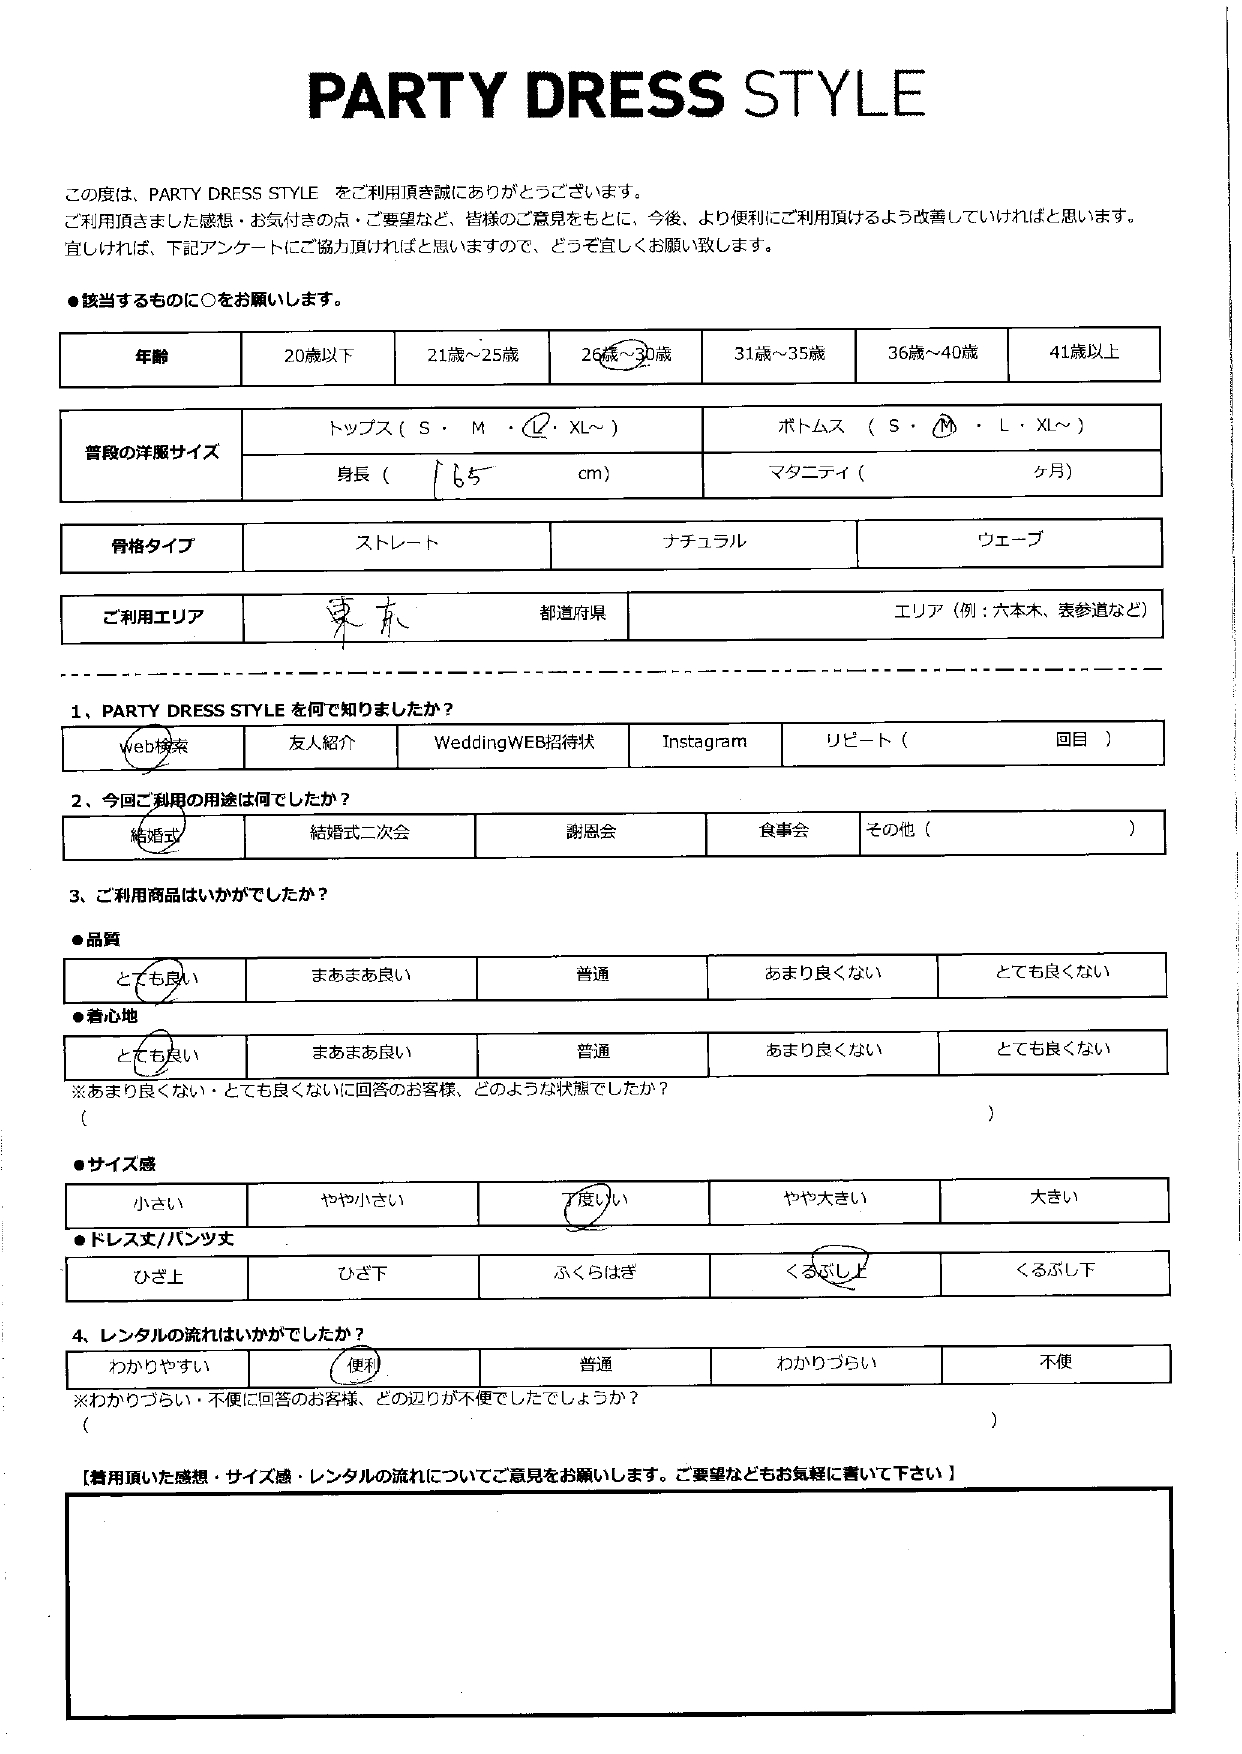 PARTY DRESS STYLE
この度は、PARTY DRESS STYLE をご利用頂き誠にありがとうございます。
ご利用頂きました感想・お気付きの点・ご要望など、皆様のご意見をもとに、今後、より便利にご利用頂けるよう改善していければと思います。
宜しければ、下記アンケートにご協力頂ければと思いますので、どうぞ宜しくお願い致します。
●該当するものに○をお願いします。
年齢 20歳以下 21歳～25歳 26歳～30歳 31歳～35歳 36歳～40歳 41歳以上
普段の洋服サイズ トップス ( S ・ M ・ L ・ XL～ ) ボトムス ( S ・ M ・ L ・ XL～ )
身長 ( 165 cm) マタニティ ( ヶ月)
骨格タイプ ストレート ナチュラル ウェーブ
ご利用エリア 東京 都道府県 エリア（例：六本木、表参道など）
1、PARTY DRESS STYLE を何で知りましたか？
web検索 友人紹介 WeddingWEB招待状 Instagram リピート ( 回目 )
2、今回ご利用の用途は何でしたか？
結婚式 結婚式二次会 謝恩会 食事会 その他 ( )
3、ご利用商品はいかがでしたか？
●品質
とても良い まあまあ良い 普通 あまり良くない とても良くない
●着心地
とても良い まあまあ良い 普通 あまり良くない とても良くない
※あまり良くない・とても良くないに回答のお客様、どのような状態でしたか？
( )
●サイズ感
小さい やや小さい 丁度いい やや大きい 大きい
●ドレス丈/パンツ丈
ひざ上 ひざ下 ふくらはぎ くるぶし上 くるぶし下
4、レンタルの流れはいかがでしたか？
わかりやすい 便利 普通 わかりづらい 不便
※わかりづらい・不便に回答のお客様、どの辺りが不便でしたでしょうか？
( )
【着用頂いた感想・サイズ感・レンタルの流れについてご意見をお願いします。ご要望などもお気軽に書いて下さい 】